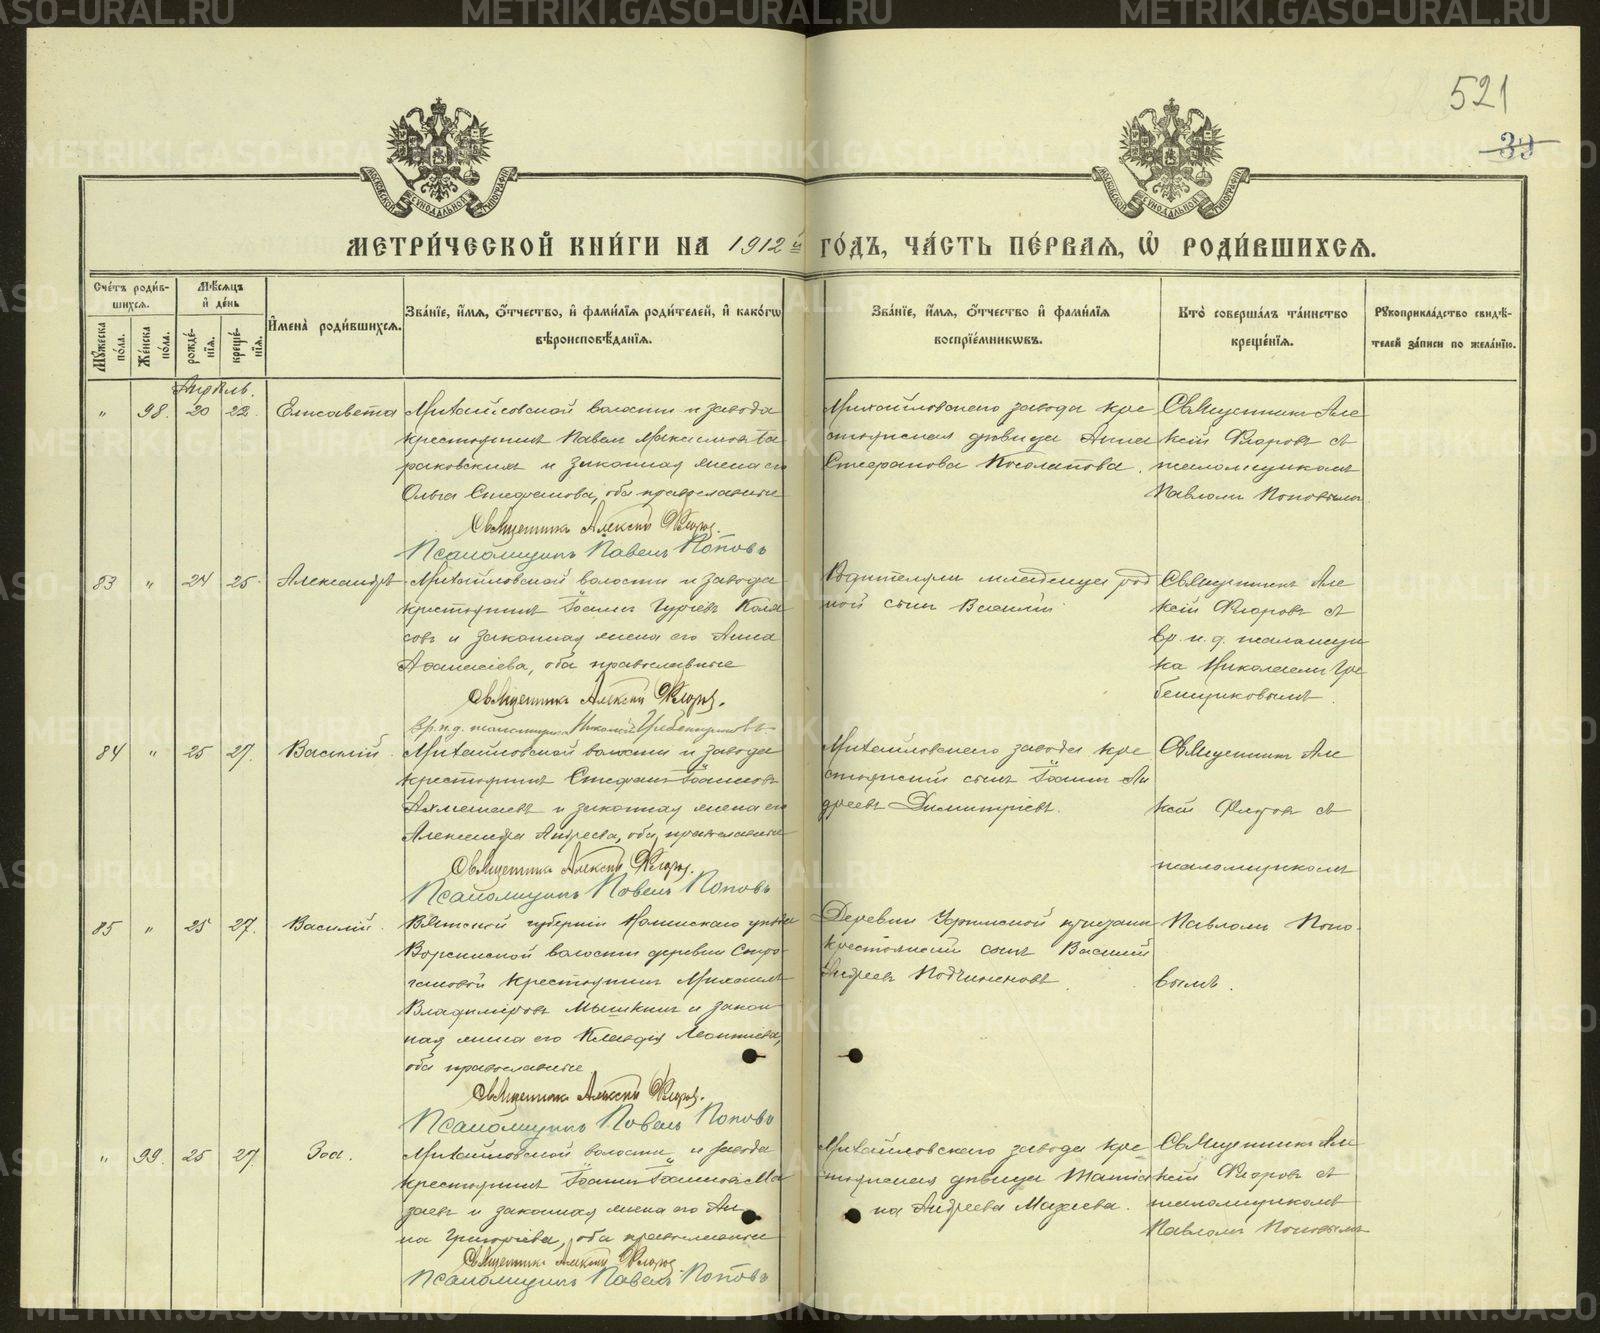 METRIKI.GASO-URAL.RU
521
39
МОСКОВСКОЙ СѴНОДАЛЬНОЙ ТИПОГРАФІИ
МОСКОВСКОЙ СѴНОДАЛЬНОЙ ТИПОГРАФІИ
МЕТРИ́ЧЕСКОЙ КНИ́ГИ НА 1912 й ГО́ДЪ, ЧА́СТЬ ПЕ́РВАЯ, Ѡ҆ РОДИ́ВШИХСѦ.
Сче́тъ роди́вшихся.
Мꙋ́жеска по́ла.
Же́нска по́ла.
Мѣ́сяцъ и҆ де́нь
рожде́нїѧ.
креще́нїѧ.
И҆мена̀ роди́вшихся.
Зва́нїе, и҆́мѧ, ѻ҆́тчество, и҆ фами́лїѧ роди́телей, и҆ како́гѡ
вѣроисповѣ́данїѧ.
Зва́нїе, и҆́мѧ, ѻ҆́тчество и҆ фами́лїѧ
воспрїе́мникѡвъ.
Кто̀ соверша́лъ та́инство
креще́нїѧ.
Рꙋкоприкла́дство свидѣ́телей за́писи по жела́нїю.
Апрѣль.
" 98. 20 22. Елисавета
Михайловской волости и завода
крестьянинъ Павелъ Максимовъ Та
раковскихъ и законная жена его
Ольга Стефанова, оба православные
Священникъ Алексій Флоровъ.
Псаломщикъ Павелъ Поповъ
Михайловскаго завода кре
стьянская дѣвица Анна
Стефанова Косолапова.
Священникъ Але
ксій Флоровъ съ
псаломщикомъ
Павломъ Поповымъ
83 " 24 25. Александръ
Михайловской волости и завода
крестьянинъ Іоаннъ Гурьевъ Коля
совъ и законная жена его Анна
Аѳанасіева, оба православные
Священникъ Алексій Флоровъ.
Вр. и. д. псаломщика Николай Гребенщиковъ
Родителями младенца род
ной сынъ Василій
Священникъ Але
ксій Флоровъ съ
вр. и. д. псаломщи
ка Николаемъ Гре
бенщиковымъ
84 " 25 27. Василій
Михайловской волости и завода
крестьянинъ Стефанъ Іоанновъ
и законная жена его
Александра Андреева, оба православные
Священникъ Алексій Флоровъ.
Псаломщикъ Павелъ Поповъ
Михайловскаго завода кре
стьянскій сынъ Іоаннъ Ан
дреевъ Димитріевъ.
Священникъ Але
ксій Флоровъ съ
псаломщикомъ
85 " 25 27. Василій.
Вятской губерніи уѣзда
волости деревни
крестьянинъ Михаилъ
Владиміровъ Мышкинъ и закон
ная жена его Клавдія Леонтіева,
оба православные
Священникъ Алексій Флоровъ.
Псаломщикъ Павелъ Поповъ
Деревни Уфимской
крестьянскій сынъ Василій
Андреевъ Подчиненовъ.
Павломъ Попо
вымъ.
" 99. 25 27. Зоя.
Михайловской волости и завода
крестьянинъ Іоаннъ Іоанновъ Ма
заевъ и законная жена его Ан
на Григоріева, оба православные
Священникъ Алексій Флоровъ
Псаломщикъ Павелъ Поповъ
Михайловскаго завода кре
стьянская дѣвица Татіа
на Андреева Мазаева.
Священникъ Але
ксій Флоровъ съ
псаломщикомъ
Павломъ Поповымъ